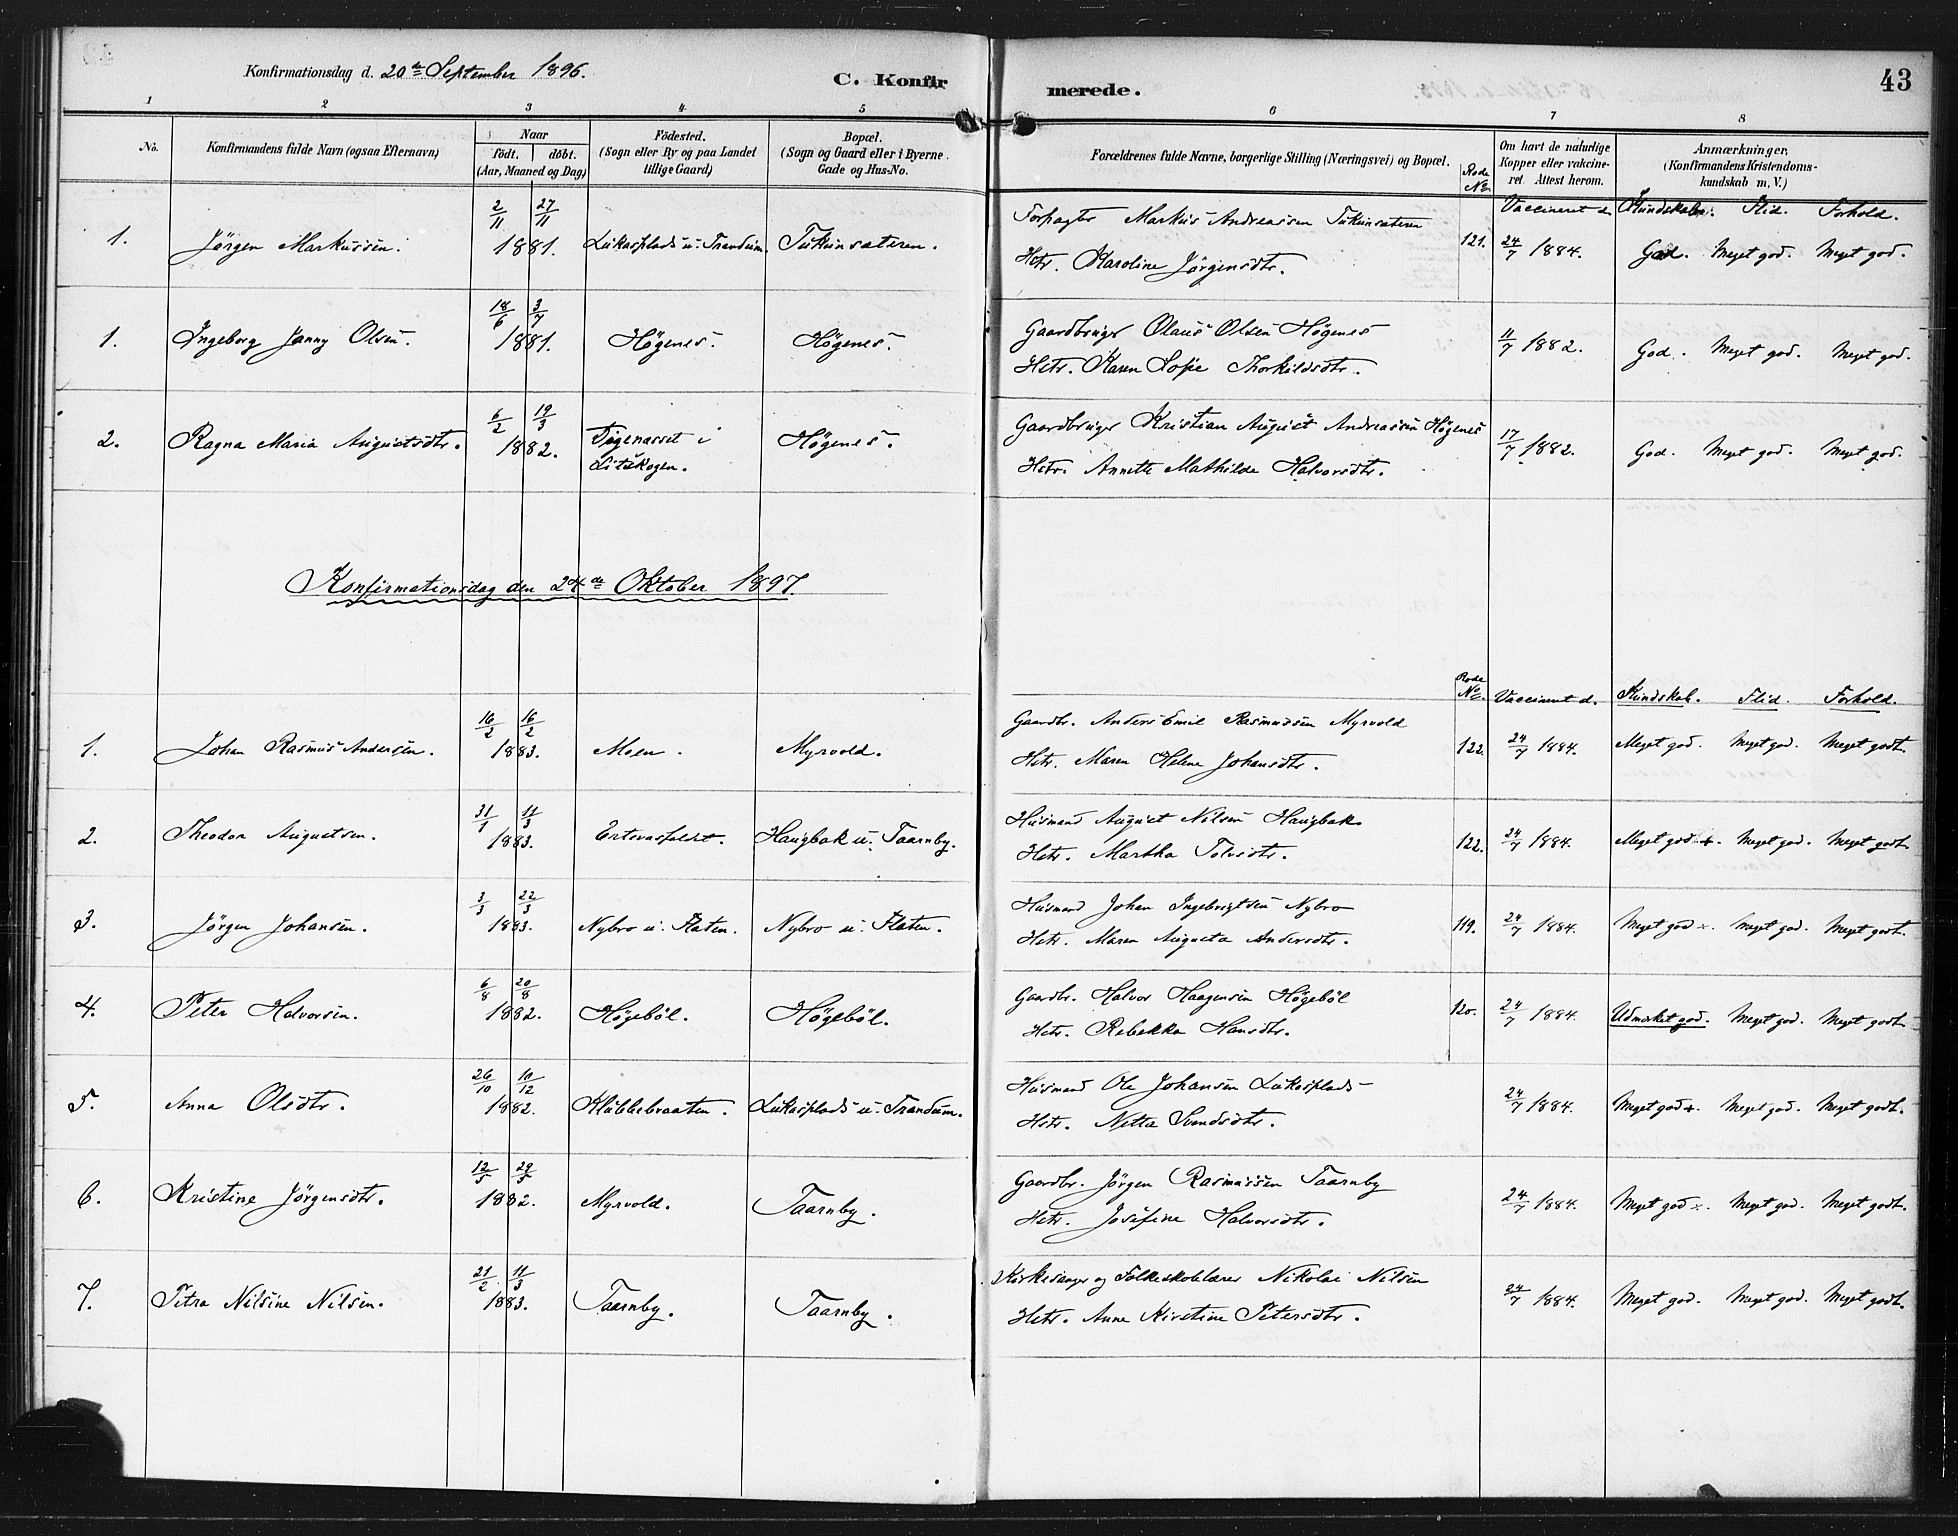 Konfirmationsdag d. 20de September 1896.
C. Konfirmerede.
43
1 2 3 4 5 6 7 8
No.
Konfirmandens fulde Navn (ogsaa Efternavn)
Naar
födt. döbt.
(Aar, Maaned og Dag)
Födested.
(Sogn eller By og paa Landet
tillige Gaard)
Bopæl.
(Sogn og Gaard eller i Byerne
Gade og Hus-No.
Forældrenes fulde Navne, borgerlige Stilling (Næringsvei) og Bopæl.
Rode
No.
Om havt de naturlige
Kopper eller vakcine-
ret. Attest herom.
Anmærkninger,
(Konfirmandens Kristendoms-
kundskab m. V.)
Vaccineret d. Kundskaber. Flid. Forhold.
1. Jörgen Markussen. 2/11 27/11 1881. Lukasplads u. Trandum. Tukunsæteren.
Forpagter Markus Andreassen Tukunsæteren
Hstr. Karoline Jörgensdtr. 121. 24/7 1884. God. Meget god. Meget god.
1. Ingeborg Janny Olsen. 18/6 3/7 1881. Högenes. Högenes.
Gaardbruger Olaus Olsen Högenes
Hstr. Karen Sofie Thorkildsdtr. 11/7 1882. God. Meget god. Meget god.
2. Ragna Maria Augustsdtr. 6/2 19/3 1882. i
Litskogen. Högenes.
Gaardbruger Kristian August Andreassen Högenes
Hstr. Annette Mathilde Halvorsdtr. 17/7 1882. God. Meget god. Meget god.
Konfirmationsdag den 24de Oktober 1897.
Rode
No. Vaccineret d. Kundskab. Flid. Forhold.
1. Johan Rasmus Andersen. 16/2 16/2 1883. Moen. Myrvold.
Gaardbr. Anders Emil Rasmussen Myrvold
Hstr. Maren Helene Johansdtr. 122. 24/7 1884. Meget god. Meget god. Meget godt.
2. Theodor Augustsen. 31/1 11/3 1883. Haugbak u. Taarnby.
Husmand August Nilsen Haugbak
Hstr. Martha Tolvsdtr. 122. 24/7 1884. Meget god +. Meget god. Meget godt.
3. Jörgen Johansen. 3/3 22/3 1883. Nybro u. Flaten. Nybro u. Flaten.
Husmand Johan Ingebrigtsen Nybro
Hstr. Maren Augusta Andersdtr. 119. 24/7 1884. Meget god ×. Meget god. Meget godt.
4. Peter Halvorsen. 6/8 20/8 1882. Högeböl. Högeböl.
Gaardbr. Halvor Haagensen Högeböl
Hstr. Rebekka Hansdtr. 120. 24/7 1884. Udmerket god. Meget god. Meget godt.
5. Anna Olsdtr. 26/10 10/12 1882. Klubbebraaten. Lukasplads u. Trandum.
Husmand Ole Johansen Lukasplads
Hstr. Netta Svendsdtr. 24/7 1884. Meget god +. Meget god. Meget godt.
6. Kristine Jörgensdtr. 12/5 29/5 1882. Myrvold. Taarnby.
Gaardbr. Jörgen Rasmussen Taarnby
Hstr. Josefine Halvorsdtr. 24/7 1884. Meget god ×. Meget god. Meget godt.
7. Petra Nilsine Nilsen. 21/2 11/3 1883. Taarnby. Taarnby.
Kirkesanger og Folkeskolelærer Nikolai Nilsen
Hstr. Anne Kirstine Petersdtr. 24/7 1884. Meget god. Meget god. Meget godt.